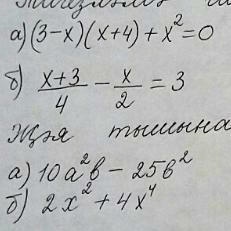 а) (3-x)(x+4)+x²=0
б) x+3/4 - x/2 = 3
Жәя тышына
а) 10a²b - 25b²
б) 2x² + 4x⁴